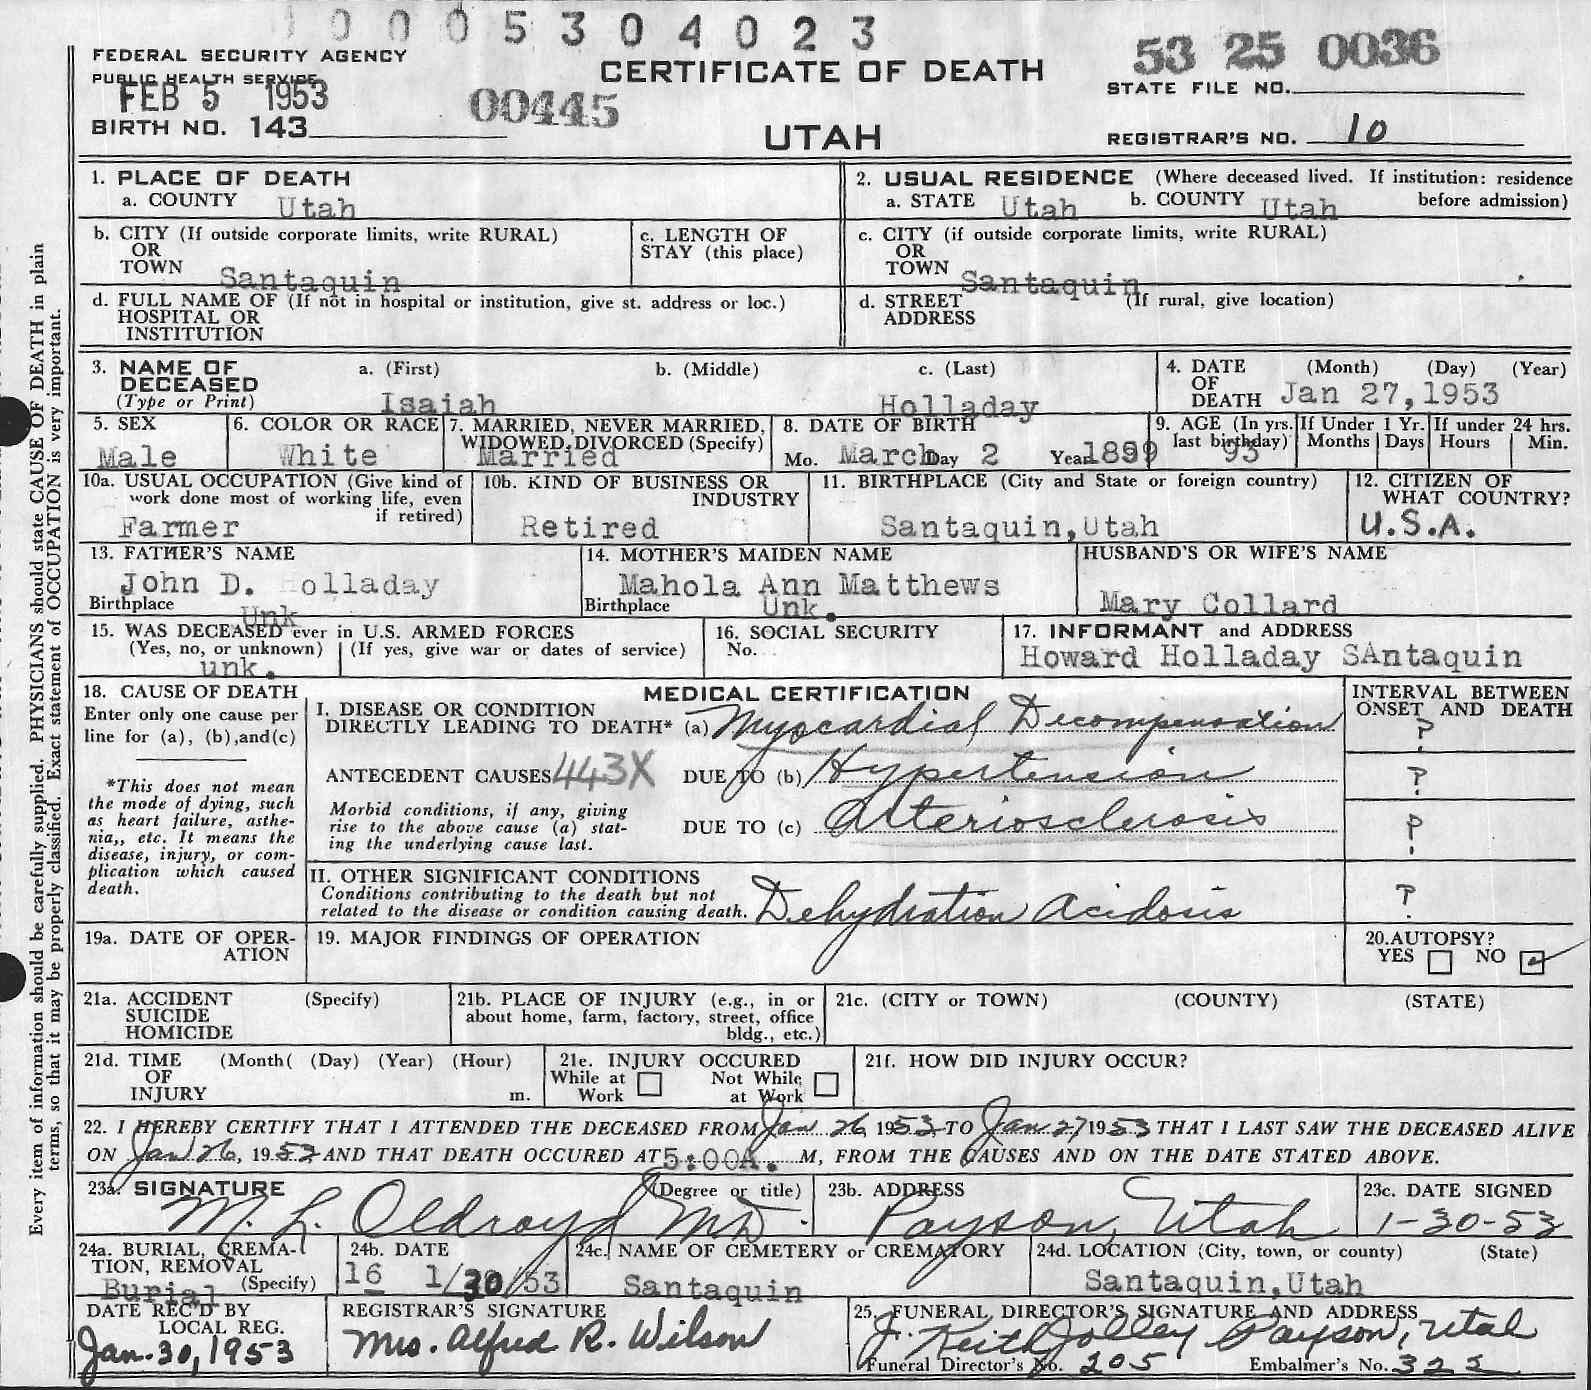 0 0 0 5 3 0 4 0 2 3
FEDERAL SECURITY AGENCY
PUBLIC HEALTH SERVICE
FEB 5 1953
00445
CERTIFICATE OF DEATH
UTAH
53 25 0036
STATE FILE NO.
BIRTH NO. 143
REGISTRAR'S NO. 10
Every item of information should be carefully supplied. PHYSICIANS should state CAUSE OF DEATH in plain
terms, so that it may be properly classified. Exact statement of OCCUPATION is very important.
1. PLACE OF DEATH
a. COUNTY Utah
2. USUAL RESIDENCE (Where deceased lived. If institution: residence
before admission)
a. STATE Utah b. COUNTY Utah
b. CITY (If outside corporate limits, write RURAL)
OR
TOWN Santaquin
c. LENGTH OF
STAY (this place)
c. CITY (if outside corporate limits, write RURAL)
OR
TOWN Santaquin
d. FULL NAME OF (If not in hospital or institution, give st. address or loc.)
HOSPITAL OR
INSTITUTION
d. STREET (If rural, give location)
ADDRESS
3. NAME OF
DECEASED
(Type or Print)
a. (First) b. (Middle) c. (Last)
Isaiah Holladay
4. DATE (Month) (Day) (Year)
OF
DEATH Jan 27, 1953
5. SEX
Male
6. COLOR OR RACE
White
7. MARRIED, NEVER MARRIED,
WIDOWED, DIVORCED (Specify)
Married
8. DATE OF BIRTH
Mo. March Day 2 Year
9. AGE (In yrs.
last birthday)
93
If Under 1 Yr.
Months Days
If under 24 hrs.
Hours Min.
10a. USUAL OCCUPATION (Give kind of
work done most of working life, even
if retired)
Farmer
10b. KIND OF BUSINESS OR
INDUSTRY
Retired
11. BIRTHPLACE (City and State or foreign country)
Santaquin, Utah
12. CITIZEN OF
WHAT COUNTRY?
U.S.A.
13. FATHER'S NAME
John D. Holladay
Birthplace Unk
14. MOTHER'S MAIDEN NAME
Mahola Ann Matthews
Birthplace Unk.
HUSBAND'S OR WIFE'S NAME
Mary Collard
15. WAS DECEASED ever in U.S. ARMED FORCES
(Yes, no, or unknown) (If yes, give war or dates of service)
unk.
16. SOCIAL SECURITY
No.
17. INFORMANT and ADDRESS
Howard Holladay SAntaquin
18. CAUSE OF DEATH
Enter only one cause per
line for (a), (b), and (c)
*This does not mean
the mode of dying, such
as heart failure, asthe-
nia,, etc. It means the
disease, injury, or com-
plication which caused
death.
MEDICAL CERTIFICATION
I. DISEASE OR CONDITION
DIRECTLY LEADING TO DEATH* (a) Myocardial Decompensation
ANTECEDENT CAUSES 443X DUE TO (b) Hypertension
Morbid conditions, if any, giving
rise to the above cause (a) stat-
ing the underlying cause last.
DUE TO (c) Arteriosclerosis
INTERVAL BETWEEN
ONSET AND DEATH
?
?
?
II. OTHER SIGNIFICANT CONDITIONS
Conditions contributing to the death but not
related to the disease or condition causing death. Dehydration Acidosis
?
19a. DATE OF OPER-
ATION
19. MAJOR FINDINGS OF OPERATION
20. AUTOPSY?
YES NO
21a. ACCIDENT (Specify)
SUICIDE
HOMICIDE
21b. PLACE OF INJURY (e.g., in or
about home, farm, factory, street, office
bldg., etc.)
21c. (CITY or TOWN) (COUNTY) (STATE)
21d. TIME (Month( (Day) (Year) (Hour)
OF
INJURY m.
21e. INJURY OCCURED
While at Work Not While at Work
21f. HOW DID INJURY OCCUR?
22. I HEREBY CERTIFY THAT I ATTENDED THE DECEASED FROM Jan 26 1953 TO Jan 27 1953 THAT I LAST SAW THE DECEASED ALIVE
ON Jan 26, 1953 AND THAT DEATH OCCURED AT 5:00A. M, FROM THE CAUSES AND ON THE DATE STATED ABOVE.
23a. SIGNATURE (Degree or title)
M. L. Oldroyd MD.
23b. ADDRESS
Payson, Utah
23c. DATE SIGNED
1-30-53
24a. BURIAL, CREMA-
TION, REMOVAL
(Specify)
Burial
24b. DATE
16 1/30/53
24c. NAME OF CEMETERY or CREMATORY
Santaquin
24d. LOCATION (City, town, or county) (State)
Santaquin, Utah
DATE REC'D BY
LOCAL REG.
Jan. 30, 1953
REGISTRAR'S SIGNATURE
Mrs. Alfred R. Wilson
25. FUNERAL DIRECTOR'S SIGNATURE AND ADDRESS
J. Keith Jolley Payson, Utah
Funeral Director's No. 205 Embalmer's No. 325